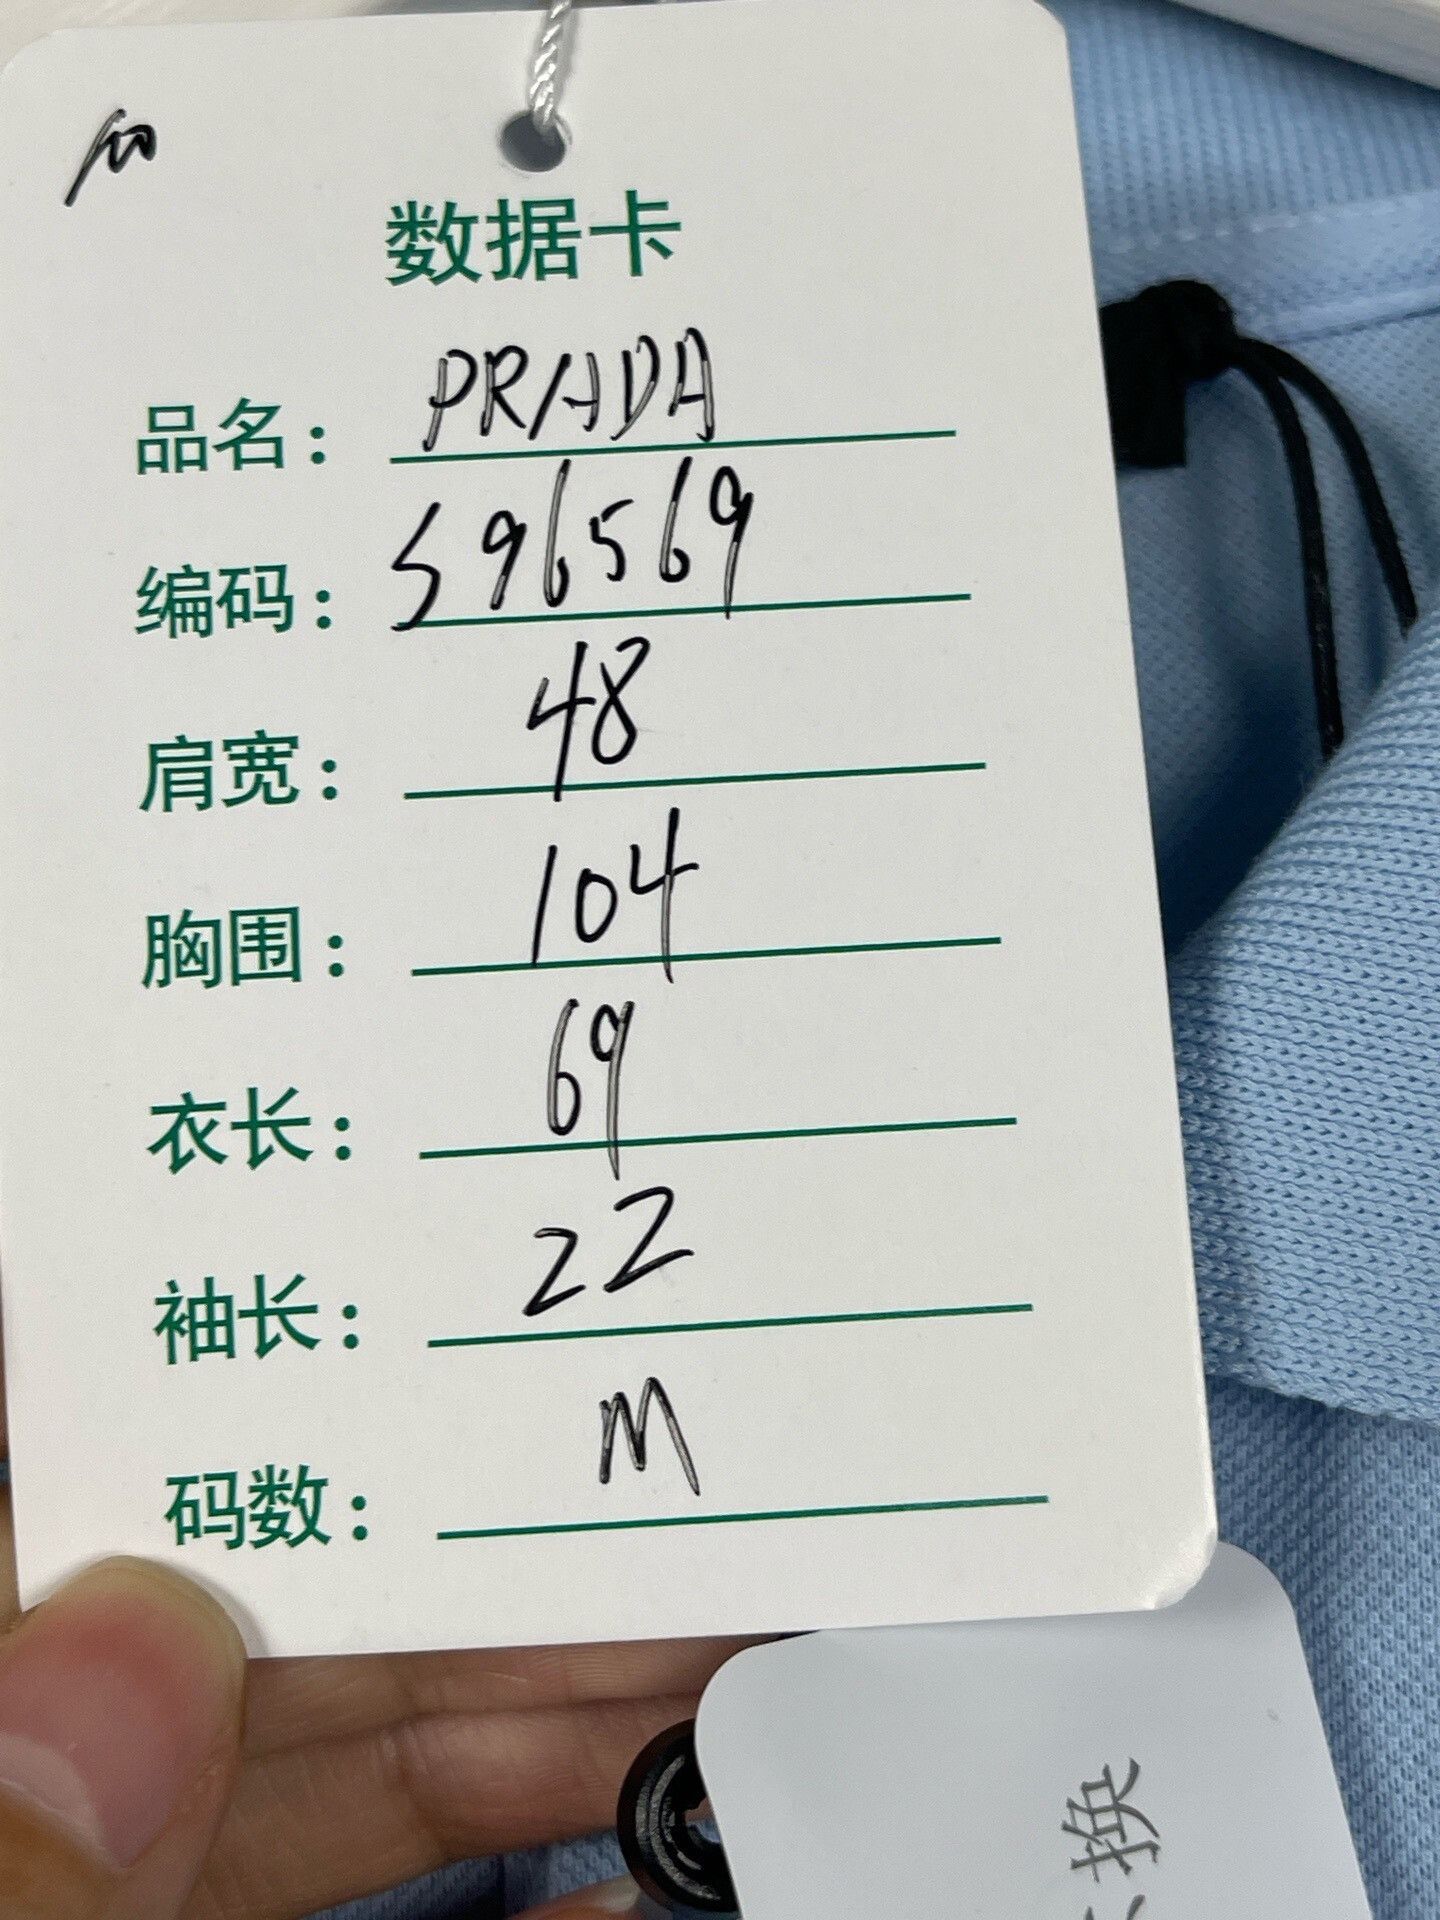 数据卡
品名: PRADA
编码: S96569
肩宽: 48
胸围: 104
衣长: 69
袖长: 22
码数: M
换